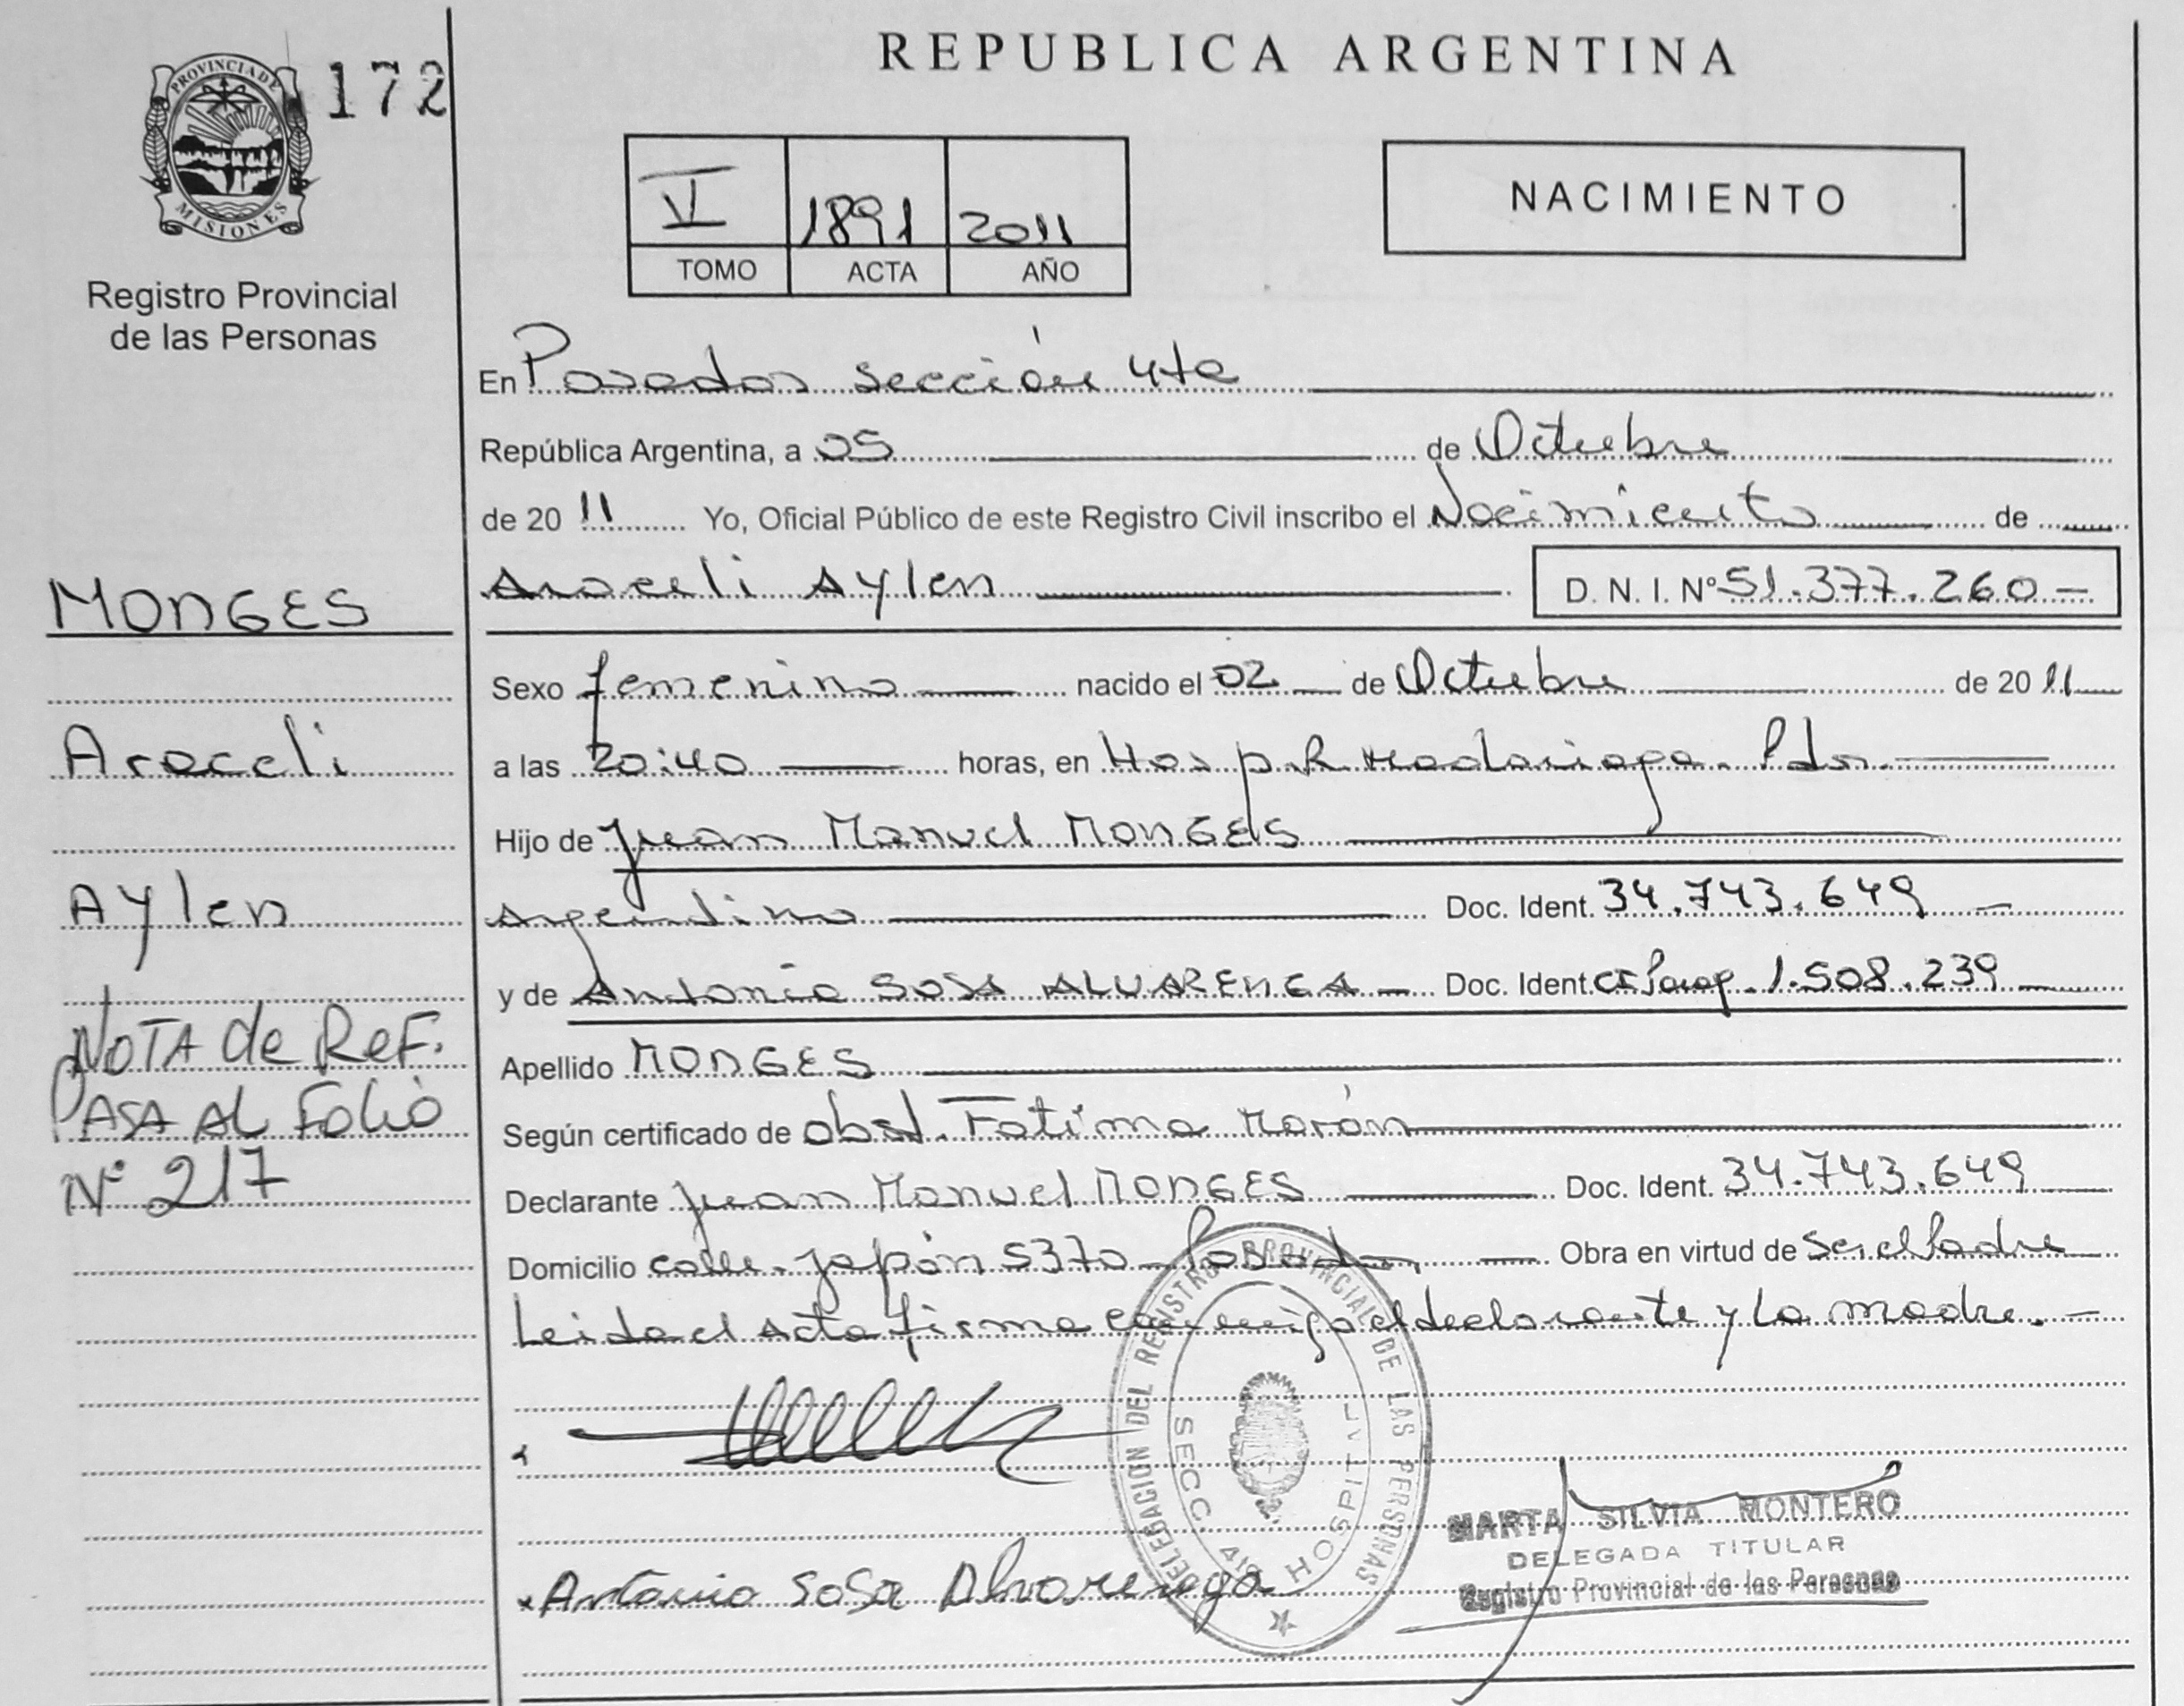 PROVINCIA DE
MISIONES
172
Registro Provincial
de las Personas
MONGES
Araceli
Aylen
NOTA de ReF.
PASA AL Folio
N° 217
REPUBLICA ARGENTINA
VI 1891 2011
TOMO ACTA AÑO
NACIMIENTO
En Posadas sección 4ta
República Argentina, a 05 de Octubre
de 2011 Yo, Oficial Público de este Registro Civil inscribo el Nacimiento de
Araceli Aylen D. N. I. N° 51.377.260-
Sexo femenino nacido el 02 de Octubre de 2011
a las 20:40 horas, en Hosp. R. Madariaga. Pdas.
Hijo de Juan Manuel MONGES
Argentino Doc. Ident. 34.743.649
y de Antonia SOSA ALVARENGA Doc. Ident. CI Parag. 1.508.239
Apellido MONGES
Según certificado de obst. Fatima Morán
Declarante Juan Manuel MONGES Doc. Ident. 34.743.649
Domicilio calle Japón 5370 Posadas Obra en virtud de ser el Padre
Leida el acta firma conmigo el declarante y la madre.
Antonia Sosa Alvarenga
DELEGACION DEL REGISTRO PROVINCIAL DE LAS PERSONAS
SECC. 4ta HOSPITAL
MARTA SILVIA MONTERO
DELEGADA TITULAR
Registro Provincial de las Personas